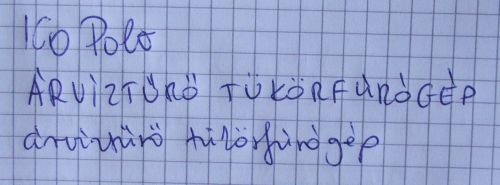 KO Polo
ÁRVÍZTŰRŐ TÜKÖRFÚRÓGÉP
árvíztűrő tükörfúrógép